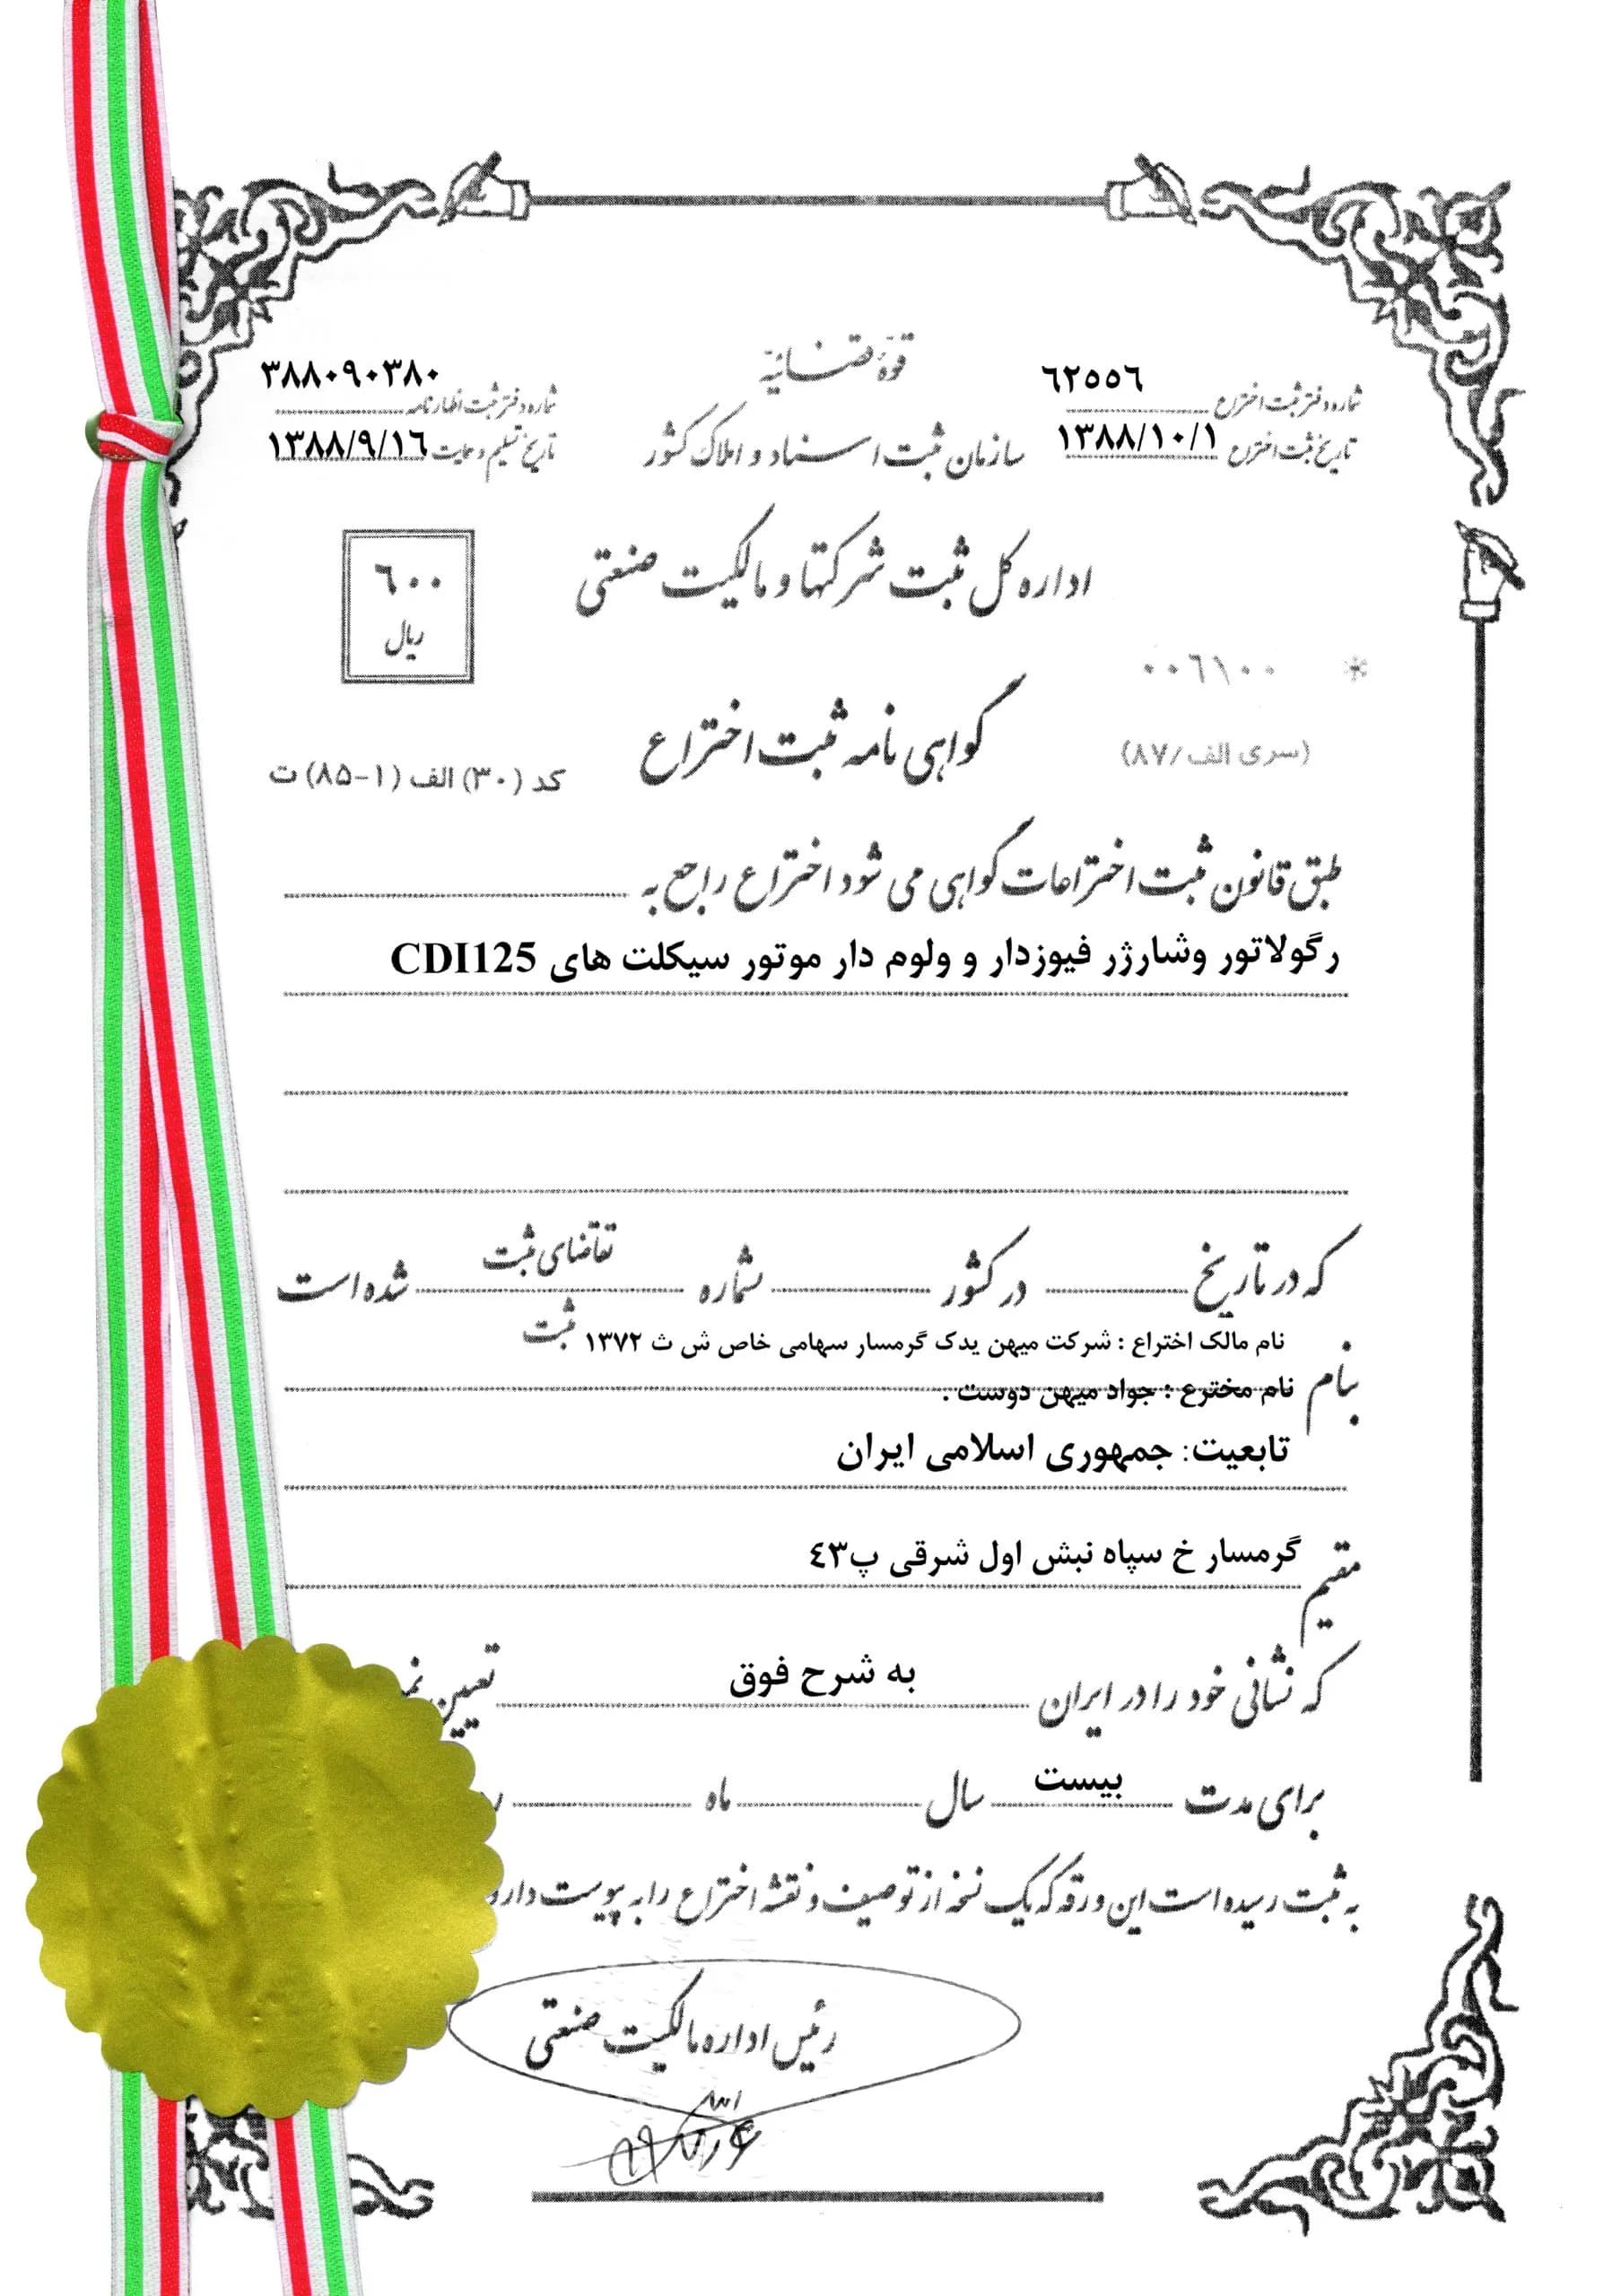 قوهٔ قضائیه
سازمان ثبت اسناد و املاک کشور
٦٢٥٥٦
شماره دفتر ثبت اختراع
تاریخ ثبت اختراع ١٣٨٨/١٠/١
٣٨٨٠٩٠٣٨٠
شماره دفتر ثبت اظهارنامه
تاریخ تسلیم و حمایت ١٣٨٨/٩/١٦
اداره کل ثبت شرکتها و مالکیت صنعتی
٦٠٠
ریال
* ٠٠٦١٠٠
(سری الف/۸۷)
گواهی نامه ثبت اختراع
کد (۳۰) الف (۱-۸۵) ت
طبق قانون ثبت اختراعات گواهی می شود اختراع راجع به
رگولاتور وشارژر فیوزدار و ولوم دار موتور سیکلت های CDI125
که در تاریخ در کشور شماره تقاضای ثبت شده است
ثبت
بنام نام مالک اختراع : شرکت میهن یدک گرمسار سهامی خاص ش ث ١٣٧٢
نام مخترع : جواد میهن دوست .
تابعیت: جمهوری اسلامی ایران
مقیم گرمسار خ سپاه نبش اول شرقی پ٤٣
که نشانی خود را در ایران به شرح فوق تعیین
برای مدت بیست سال ماه
به ثبت رسیده است این ورقه که یک نسخه از توصیف و نقشه اختراع را به پیوست دارد
رئیس اداره مالکیت صنعتی